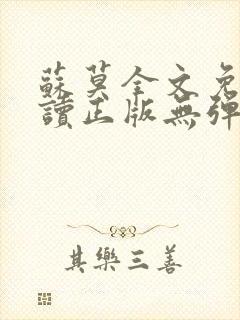 蘇莫全文免
讀正版無彈
其樂三善